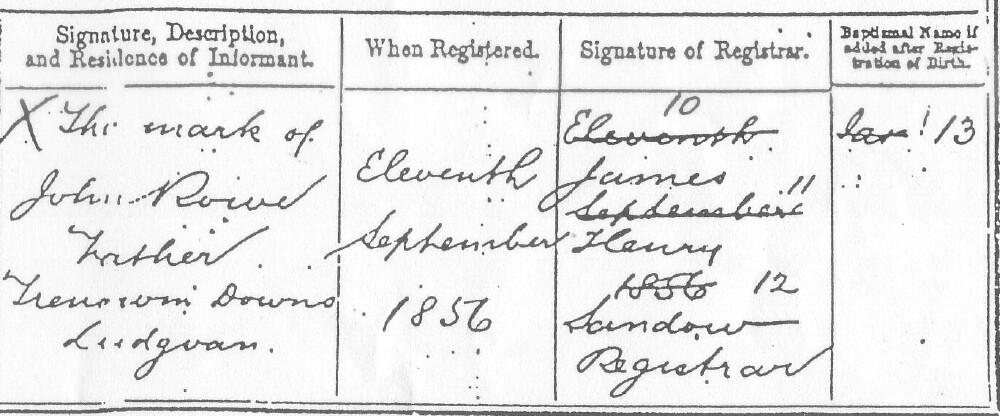 Signature, Description,
and Residence of Informant.
When Registered.
Signature of Registrar.
Baptismal Name if
added after Regis-
tration of Birth.
X The mark of
John Rowe
Father
Downs
Ludgvan.
Eleventh
September
1856
10
Eleventh
James
September 11
Henry
1856 12
Sandow
Registrar
13